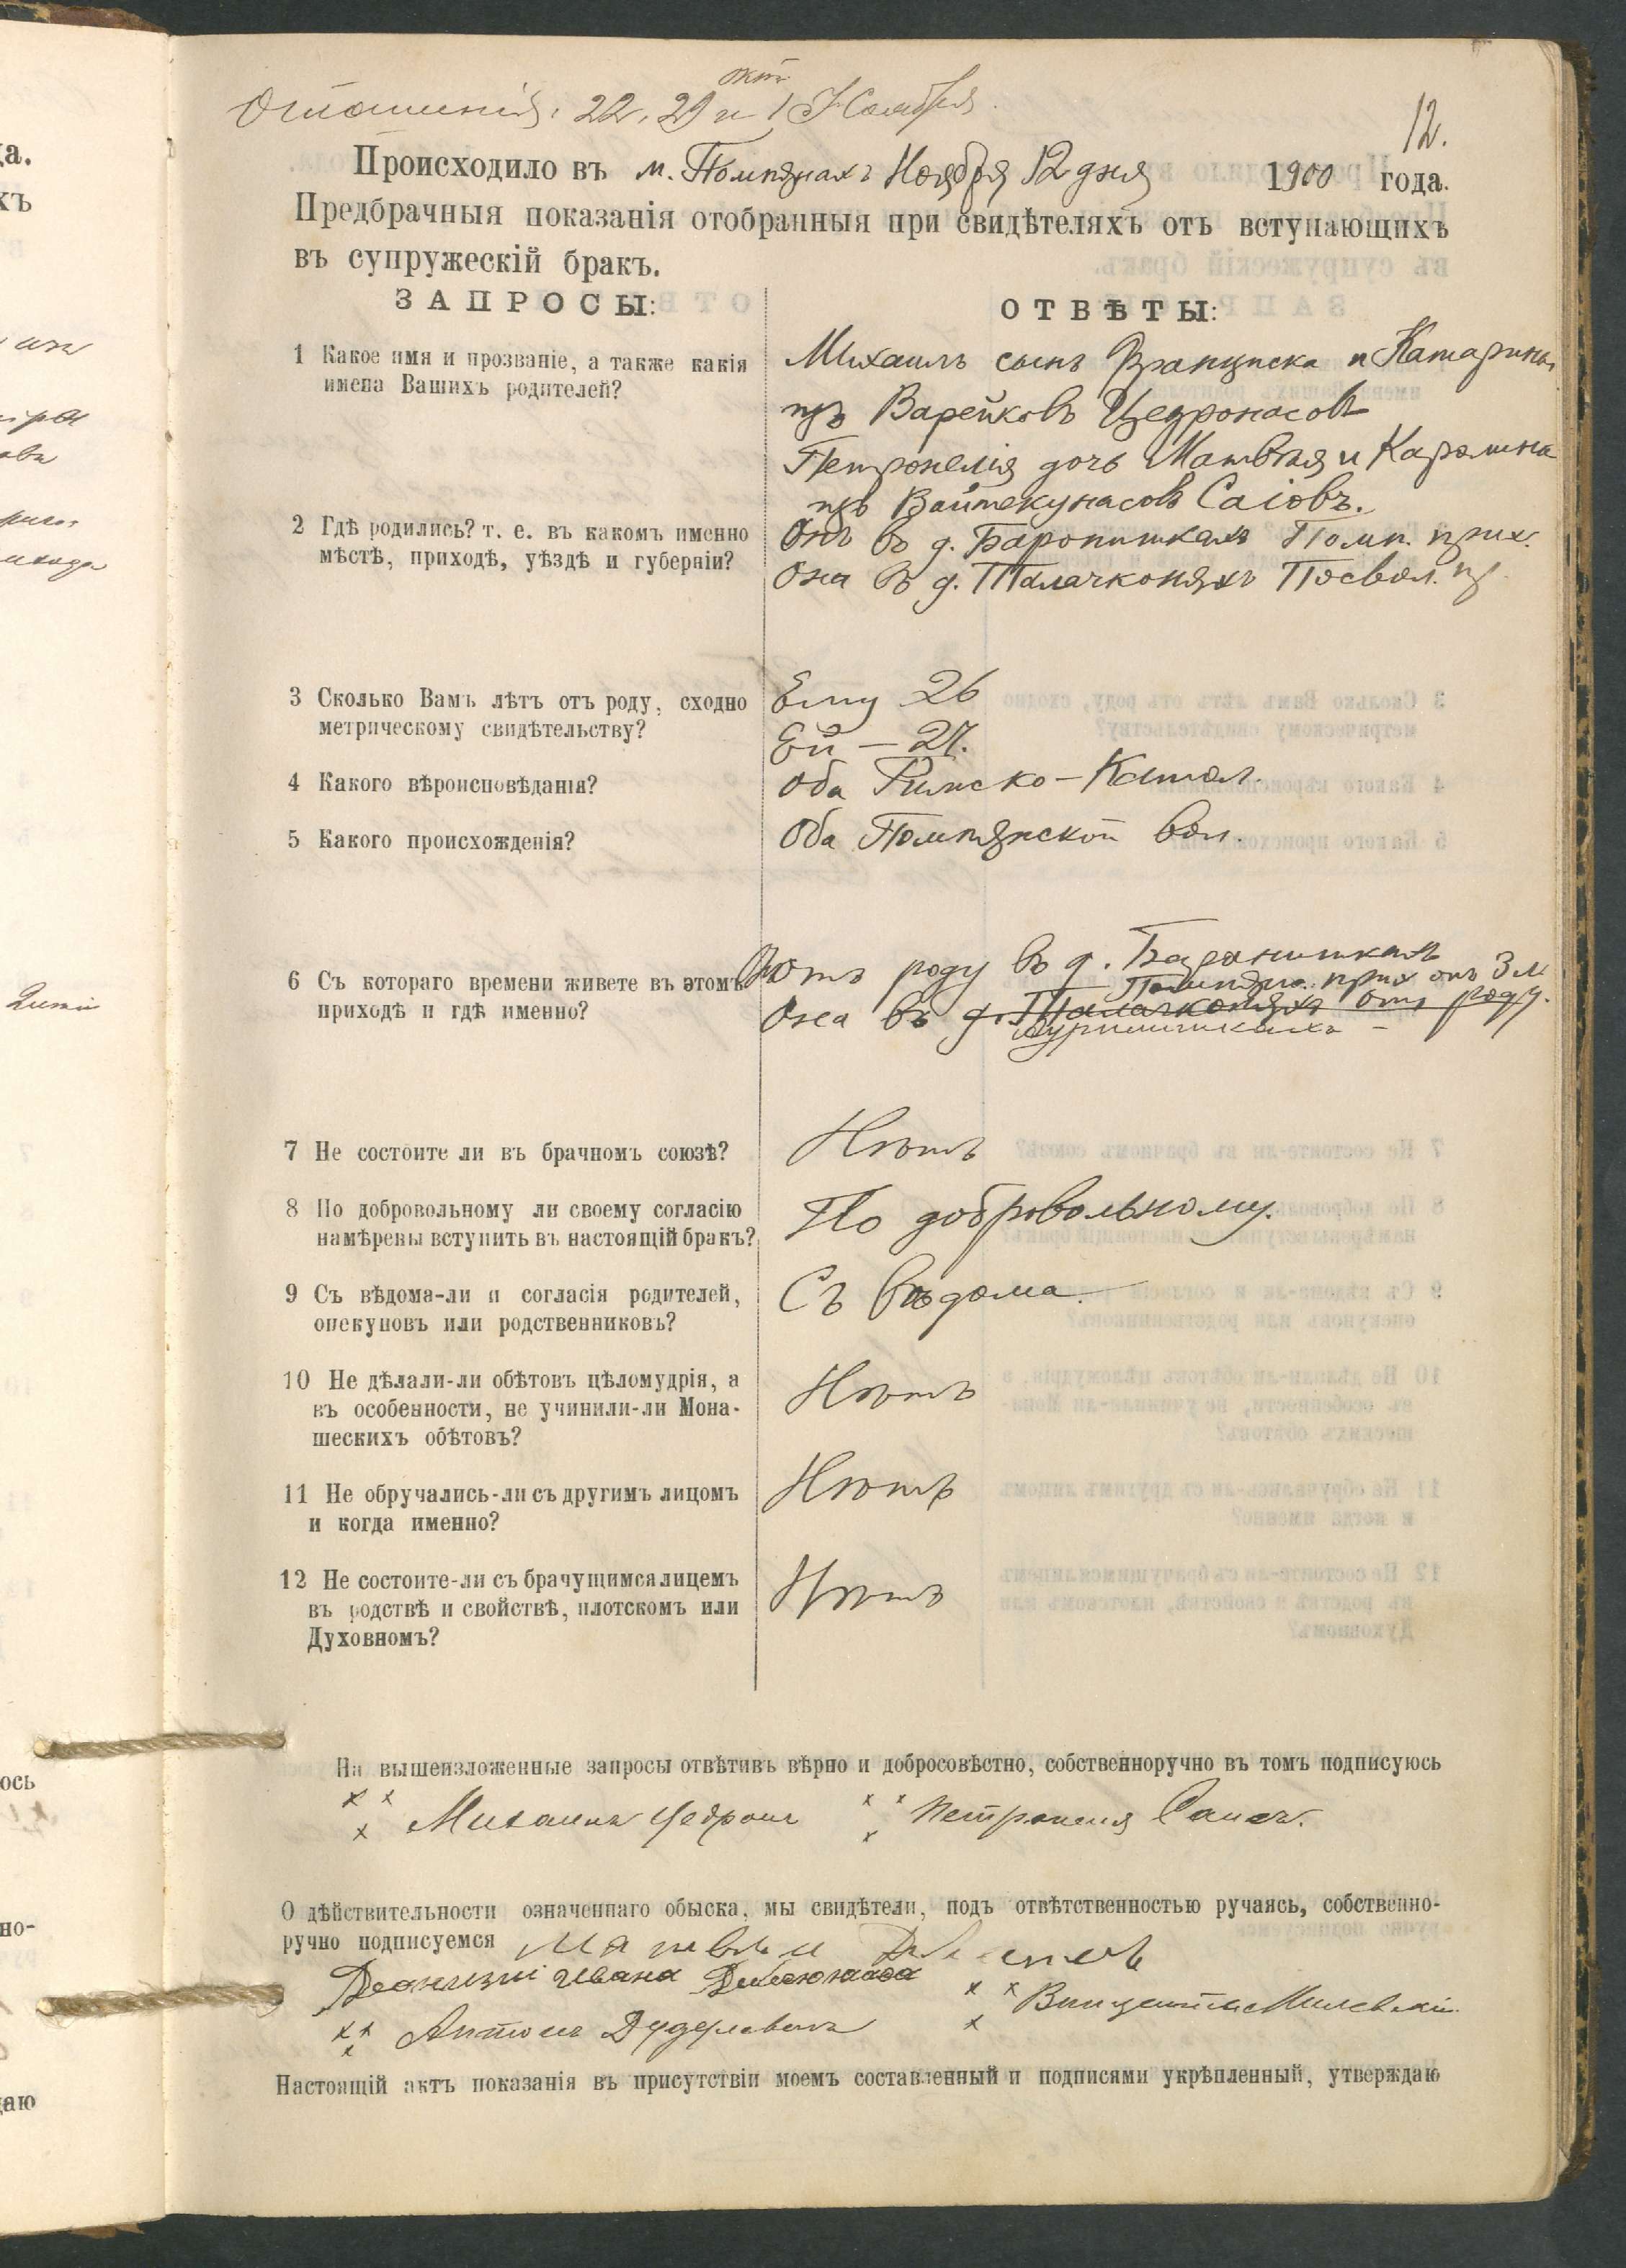 окт.
Оглашенія: 22, 29 и 1 Ноября.
12.
Происходило въ м. Помпянахъ Ноября 12 дня 1900 года.
Предбрачныя показанія отобранныя при свидѣтеляхъ отъ вступающихъ
въ супружескій бракъ.
ЗАПРОСЫ:
ОТВѢТЫ:
1 Какое имя и прозваніе, а также какія
имена Вашихъ родителей?
Михаилъ сынъ Францишка и Катарины
изъ Варейковъ Цедронасовъ
Петронелія дочь Матвѣя и Каролины
изъ Войтекунасовъ Саіовъ.
2 Гдѣ родились? т. е. въ какомъ именно
мѣстѣ, приходѣ, уѣздѣ и губерніи?
Онъ въ д. Баронишкахъ Помп. прих.
Она въ д. Талачконяхъ Посвол. пр.
3 Сколько Вамъ лѣтъ отъ роду, сходно
метрическому свидѣтельству?
Ему 26
Ей — 27.
4 Какого вѣроисповѣданія?
Оба Римско-Катол.
5 Какого происхожденія?
Оба Помпянской вол.
6 Съ котораго времени живете въ этомъ
приходѣ и гдѣ именно?
Онъ отъ роду въ д. Баронишкахъ
прих отъ 3 м
Она въ д. Талачконяхъ отъ роду.
7 Не состоите ли въ брачномъ союзѣ?
Нѣтъ
8 По добровольному ли своему согласію
намѣрены вступить въ настоящій бракъ?
По добровольному.
9 Съ вѣдома-ли и согласія родителей,
опекуновъ или родственниковъ?
Съ вѣдома.
10 Не дѣлали-ли обѣтовъ цѣломудрія, а
въ особенности, не учинили-ли Мона-
шескихъ обѣтовъ?
Нѣтъ
11 Не обручались-ли съ другимъ лицомъ
и когда именно?
Нѣтъ
12 Не состоите-ли съ брачущимся лицемъ
въ родствѣ и свойствѣ, плотскомъ или
Духовномъ?
Нѣтъ
На вышеизложенные запросы отвѣтивъ вѣрно и добросовѣстно, собственноручно въ томъ подписуюсь
х х х Михаилъ Цедронъ х х х Петронеля
О дѣйствительности означеннаго обыска, мы свидѣтели, подъ отвѣтственностью ручаясь, собственно-
ручно подписуемся
Ивана
х х х Антонъ х х х Винцентъ Милевскій
Настоящій актъ показанія въ присутствіи моемъ составленный и подписями укрѣпленный, утверждаю